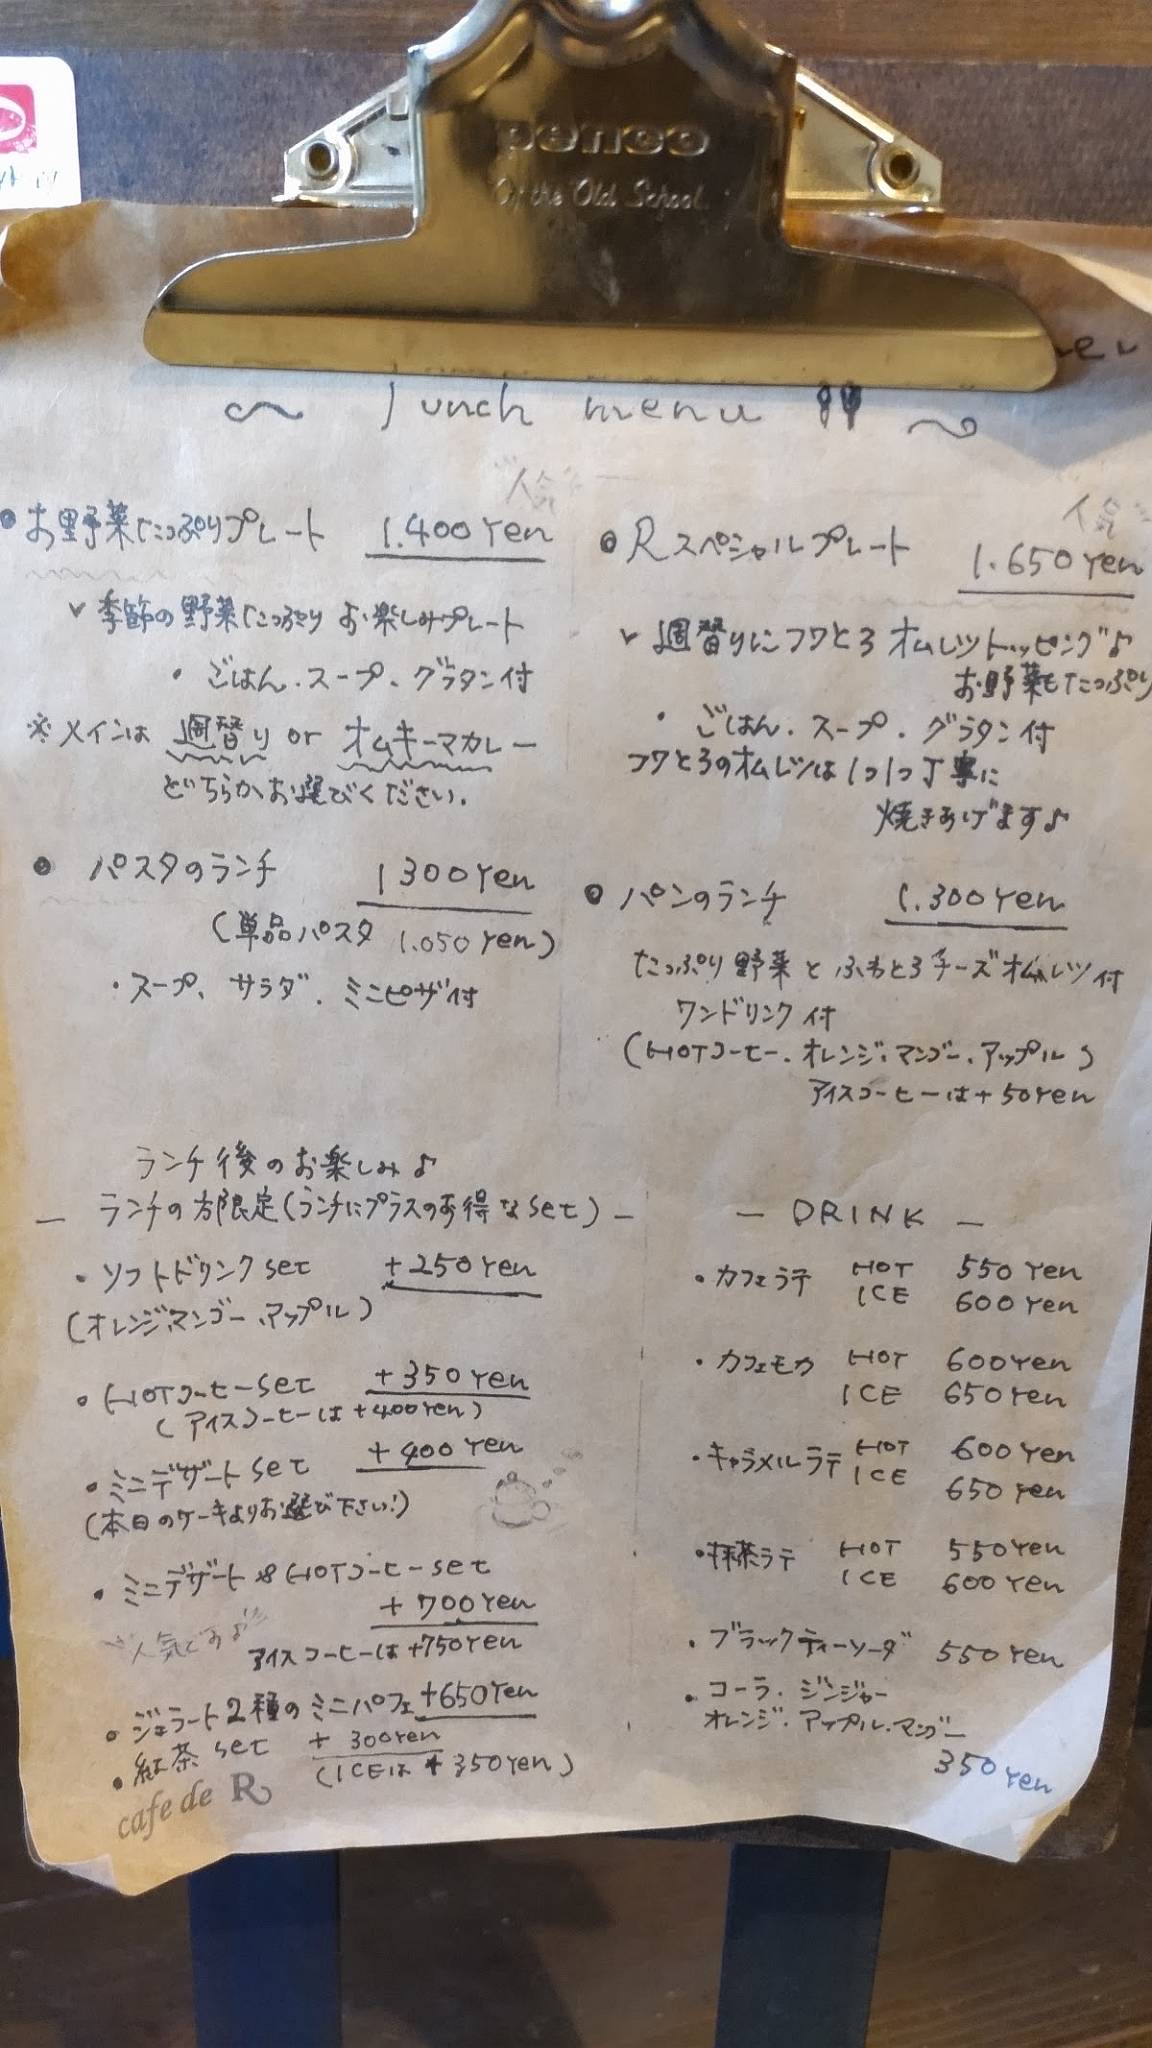 penco
Of the Old School.
lunch menu
人気
お野菜たっぷりプレート 1.400Yen
季節の野菜たっぷり お楽しみプレート
・ごはん、スープ、グラタン付
※メインは 週替り or オムキーマカレー
どちらかお選びください。
パスタのランチ 1300Yen
(単品パスタ 1.050Yen)
・スープ、サラダ、ミニピザ付
人気
Rスペシャルプレート 1.650Yen
週替りにフワとろ オムレツトッピング♪
お野菜もたっぷり
・ごはん、スープ、グラタン付
フワとろのオムレツは1つ1つ丁寧に
焼きあげます♪
パンのランチ 1.300Yen
たっぷり野菜とふわとろチーズオムレツ付
ワンドリンク付
(HOTコーヒー、オレンジ、マンゴー、アップル)
アイスコーヒーは+50Yen
ランチ後のお楽しみ♪
— ランチの方限定(ランチにプラスのお得なset) —
・ソフトドリンクset +250Yen
(オレンジ、マンゴー、アップル)
・HOTコーヒーset +350Yen
(アイスコーヒーは+400Yen)
・ミニデザートset +400Yen
(本日のケーキよりお選び下さい!)
・ミニデザート&HOTコーヒーset
+700Yen
人気です♪
アイスコーヒーは+750Yen
・ジェラート2種のミニパフェ+650Yen
・紅茶set +300Yen
(ICEは+350Yen)
cafe de R
— DRINK —
・カフェラテ HOT 550Yen
ICE 600Yen
・カフェモカ HOT 600Yen
ICE 650Yen
・キャラメルラテ HOT 600Yen
ICE 650Yen
・抹茶ラテ HOT 550Yen
ICE 600Yen
・ブラックティーソーダ 550Yen
・コーラ、ジンジャー
オレンジ、アップル、マンゴー
350Yen